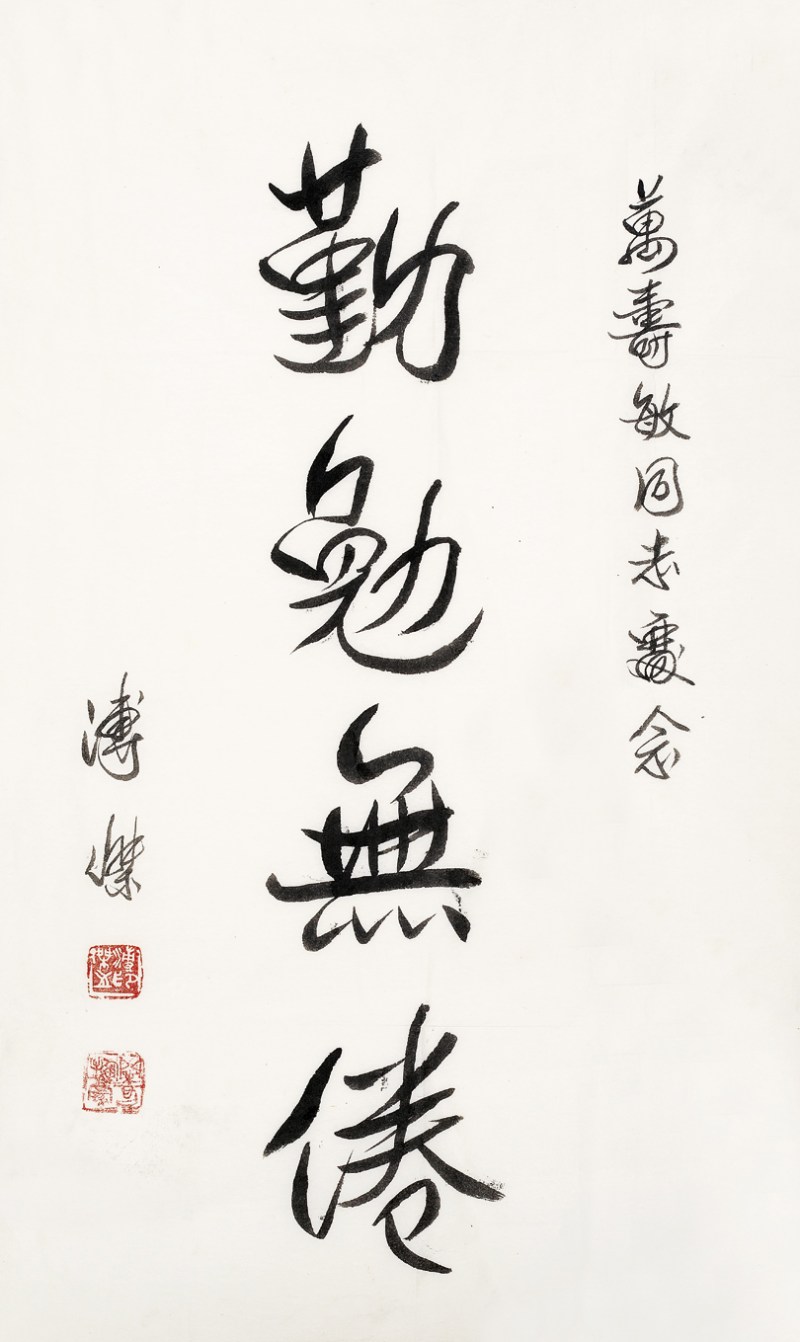 萬壽敏同志念
勤勉無倦
溥傑